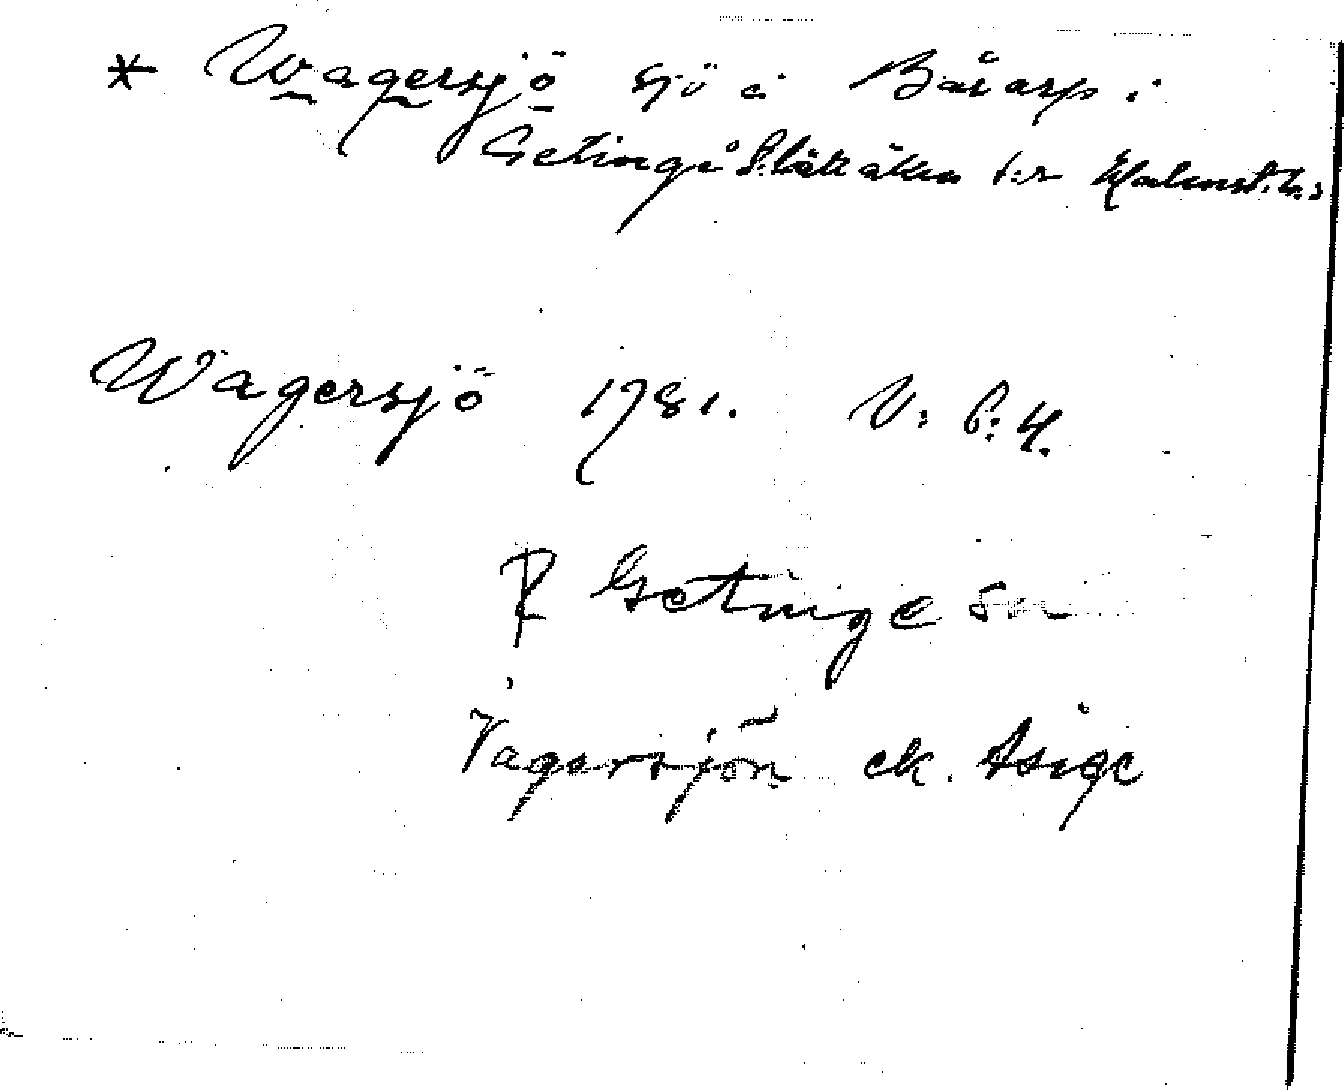 * Wagersjö sjö i Bårarp i
Getinge Slättåkra Halmst.
Wagersjö 1781. V: 6: 4.
R Getinge sn
Vagersjön ek. Asige